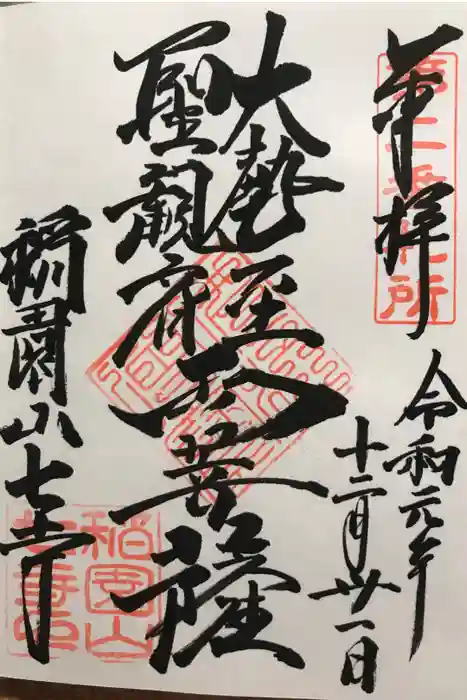 奉拝
第二番札所
令和元年
十二月廿一日
大勢至
聖観音
菩薩
稲園山七寺
稲園山
七寺印